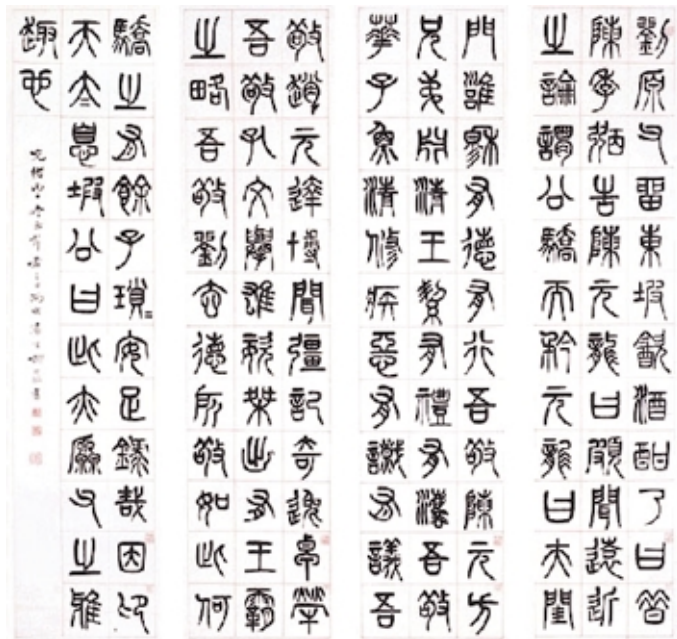 劉原父留東坡飲酒酣了曰昔
陳季弼告陳元龍曰頗聞遠近
之論謂公驕而矜元龍曰夫閨
門雝穆有德有行吾敬陳元方
兄弟淵清玉絜有禮有灋吾敬
華子魚清修疾惡有識有義吾
敬趙元達博聞彊記奇逸卓犖
吾敬孔文舉雄姿傑出有王霸
之略吾敬劉玄德所敬如此何
驕之有餘子瑣〻安足錄哉因仰
天太息坡公曰此亦原父之雅
趣也